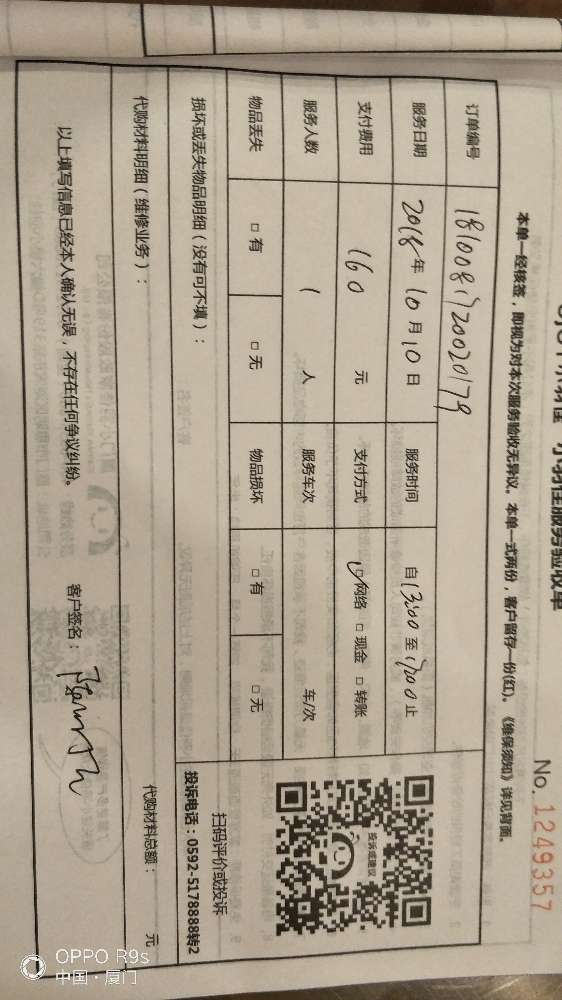 小羽佳服务验收单
No. 1249357
本单一经核签，即视为对本次服务验收无异议。本单一式两份，客户留存一份(红)。《维保须知》详见背面。
订单编号 1810081720020179
服务日期 2018年10月10日 服务时间 自13:00至1700止
支付费用 160元 支付方式 □网络 □现金 □转账
服务人数 1人 服务车次 车/次
物品丢失 □有 □无 物品损坏 □有 □无
投诉或建议
扫码评价或投诉
投诉电话：0592-5178888转2
损坏或丢失物品明细（没有可不填）：
代购材料明细（维修业务）：
代购材料总额： 元
以上填写信息已经本人确认无误，不存在任何争议纠纷。
客户签名：
OPPO R9s
中国·厦门